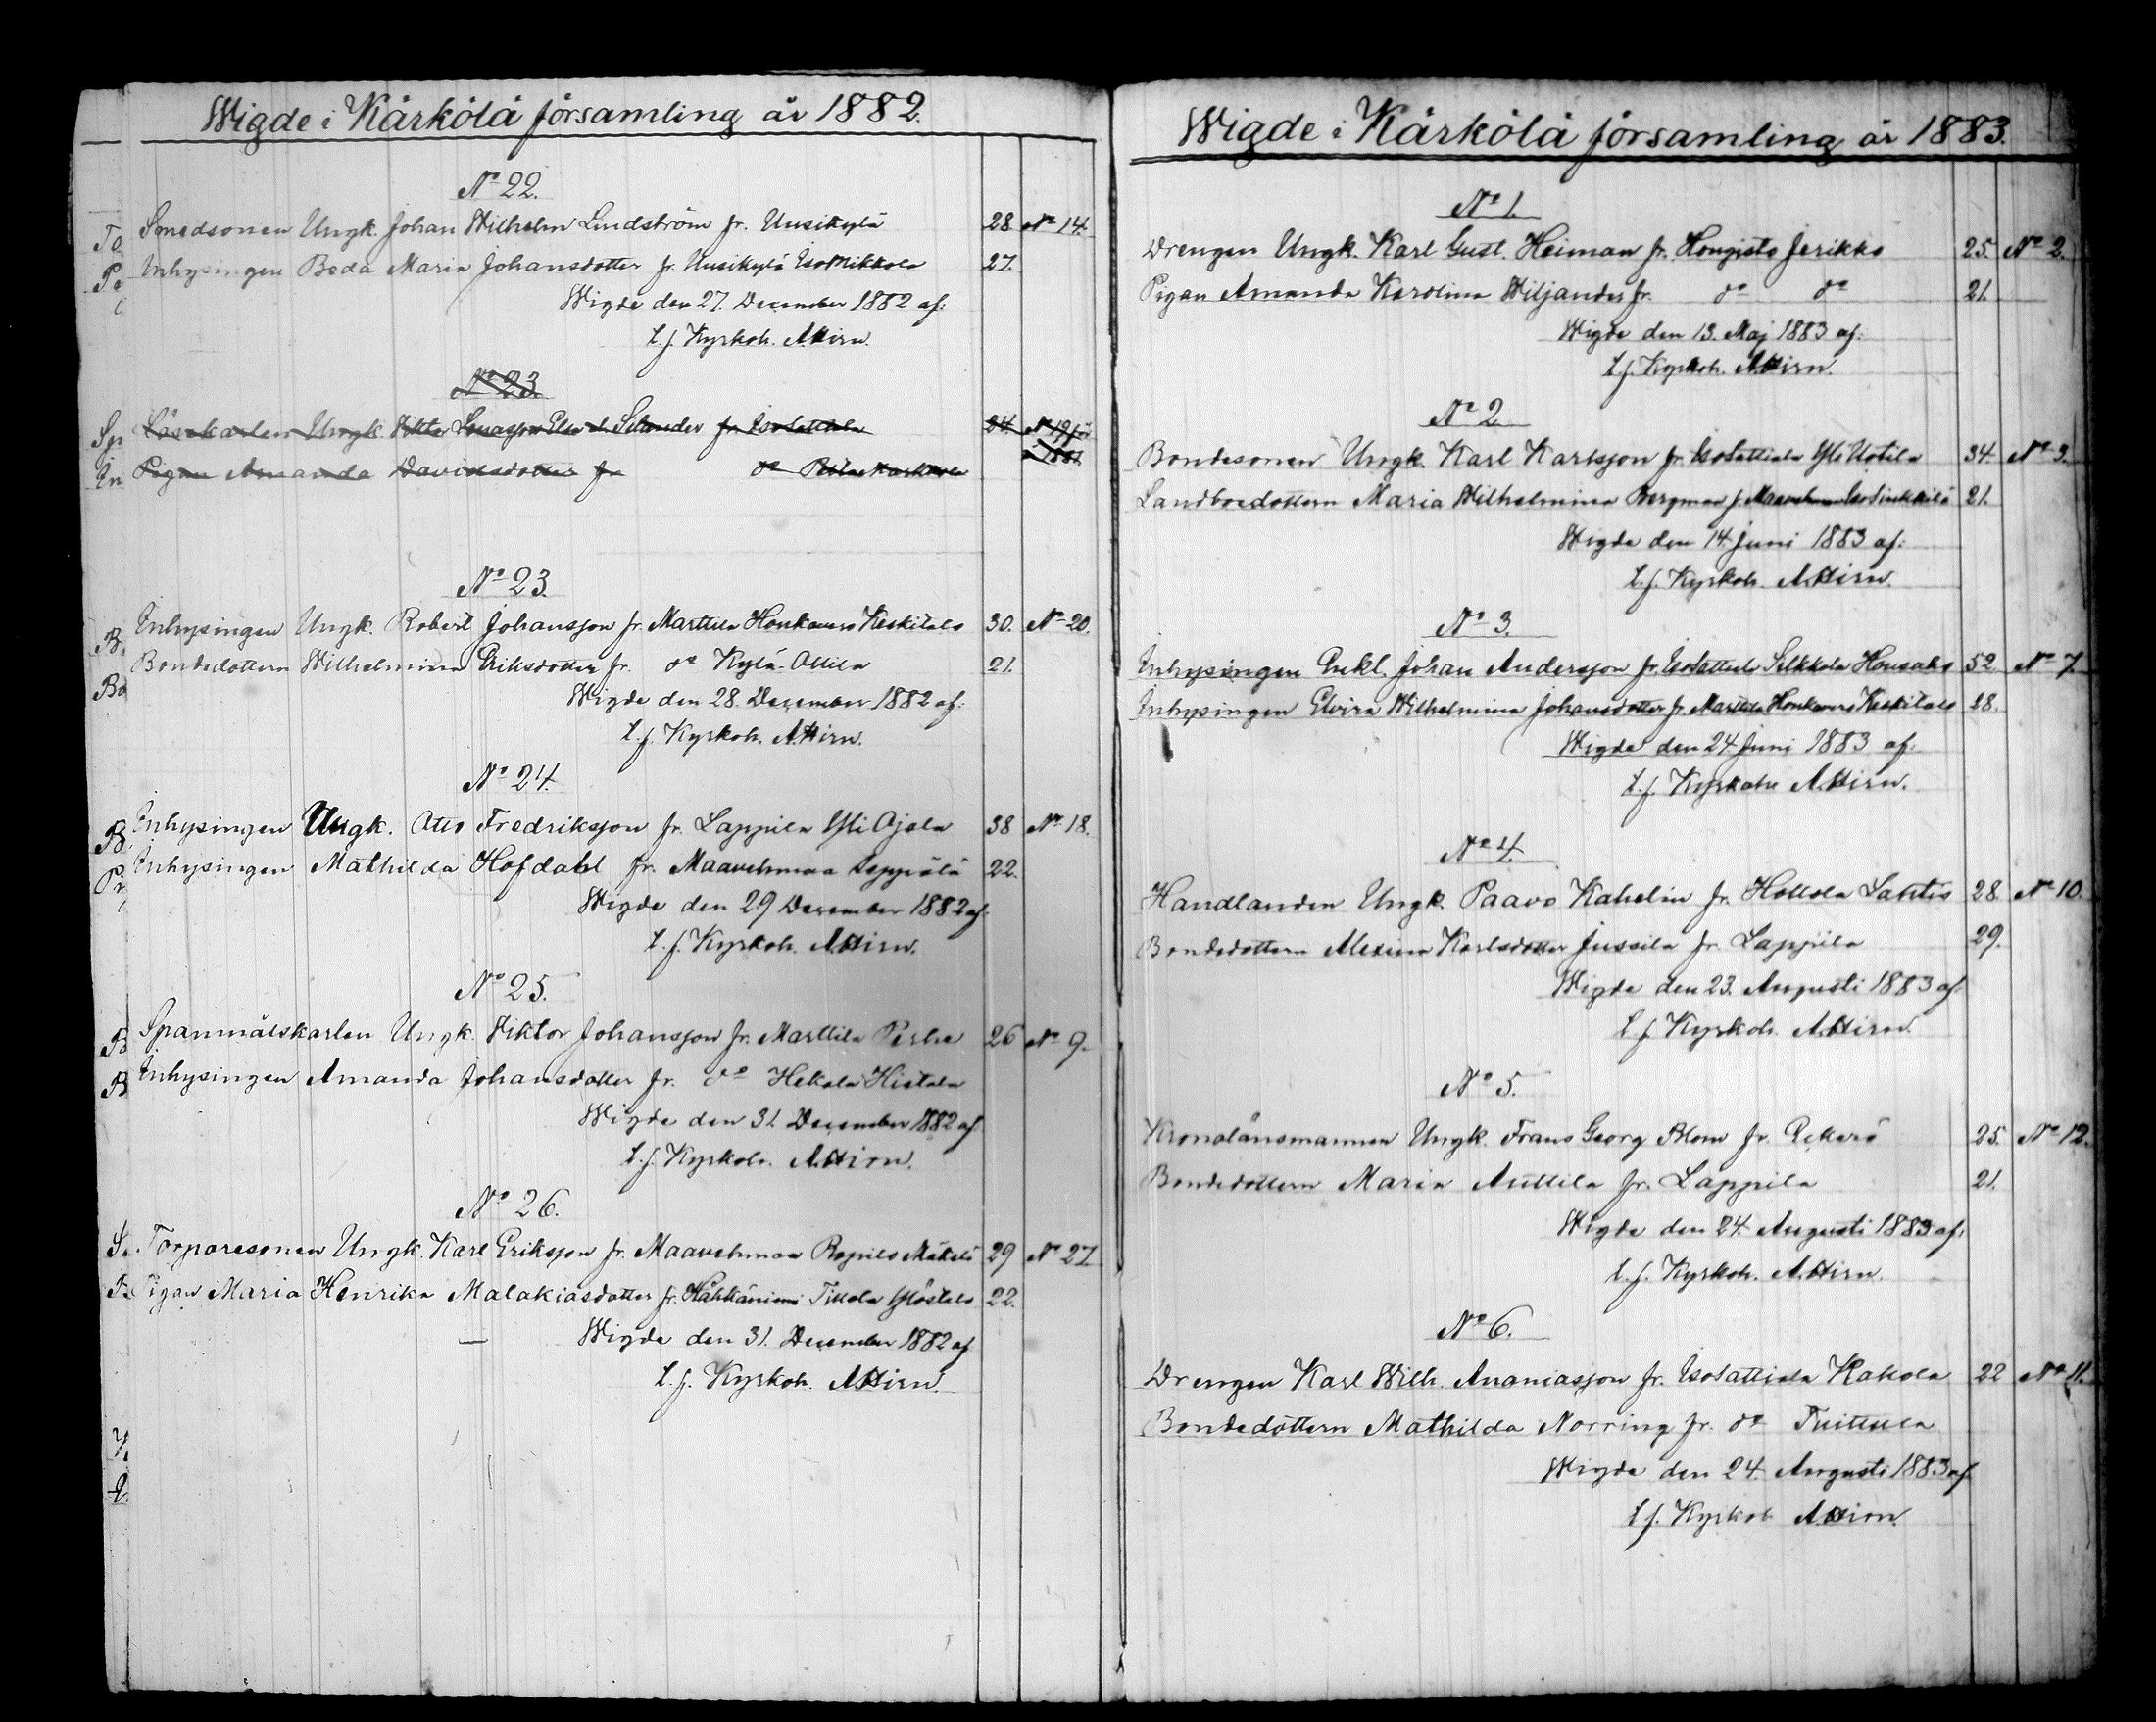 Wigde i Kärkölä församling år 1882.
No 22.
Smedsonen Ungk. Johan Wilhelm Lindström fr. Uusikylä 28 No 14.
Inhysingen Beda Maria Johansdotter fr. Uusikylä IsoMikkola 27.
Wigde den 27. December 1882 af:
t. f. Kyrkoh. A. Hirn.
No 23.
Löskarlen Ungk. Viktor Silander fr. IsoSattiala 24. No 19 för
å 1881
Pigan Amanda Davidsdotter fr do
No 23.
Inhysingen Ungk. Robert Johansson fr. Marttila Honkavero Keskitalo 30. No 20.
Bondedottern Wilhelmina Eriksdotter fr. do Kylä-Ollila 21.
Wigde den 28. December 1882 af:
t. f. Kyrkoh. A. Hirn.
No 24.
Inhysingen Ungk. Otto Fredriksson fr. Lappila Yli Ojala 38 No 18.
Inhysingen Mathilda Hofdahl fr. Maavehmaa Seppälä 22.
Wigde den 29 December 1882 af:
t. f. Kyrkoh. A. Hirn.
No 25.
Spannmålskarlen Ungk. Wiktor Johansson fr. Marttila Perhe 26 No 9.
Inhysingen Amanda Johansdotter fr. do Hekala Histala
Wigde den 31. December 1882 af:
t. f. Kyrkoh. A. Hirn.
No 26.
Torparesonen Ungk. Karl Eriksson fr. Maavehmaa Ropilo Mäkelä 29 No 27
Pigan Maria Henrika Malakiasdotter fr. Hähkäniemi Tillola Ylöstalo 22.
Wigde den 31. December 1882 af
t. f. Kyrkoh. A. Hirn.
Wigde i Kärkölä församling år 1883.
No 1.
Drengen Ungk. Karl Gust. Heiman fr. Hongisto Jerikko 25. No 2.
Pigan Amanda Karolina Wiljander fr. do do 21.
Wigde den 13. Maj 1883 af:
t. f. Kyrkoh. A. Hirn.
No 2
Bondesonen Ungk. Karl Karlsson fr. IsoSattiala Yli Uotila 34. No 3.
Landboedottern Maria Wilhelmina Bergman fr. Maavehmaa IsoSinkkilä 21.
Wigde den 14. Juni 1883 af:
t. f. Kyrkoh. A. Hirn.
No 3.
Inhysingen Enkl. Johan Andersson fr. IsoSattiala Selkkola Housako 52 No 7.
Inhysingen Elvira Wilhelmina Johansdotter fr. Marttila Honkavero Keskitalo 28.
Wigde den 24 Juni 1883 af:
t. f. Kyrkoh A. Hirn.
No 4.
Handlanden Ungk. Paavo Kahelin fr. Hollola Lahtis 28. No 10.
Bondedottern Alexina Karlsdotter Jussila fr. Lappila 29.
Wigde den 23. Augusti 1883 af:
t. f. Kyrkoh. A. Hirn.
No 5.
Kronolänsmannen Ungk. Frans Georg Blom fr. 25. No 12.
Bondedottern Maria Anttila fr. Lappila 21.
Wigde den 24. Augusti 1883 af:
t. f. Kyrkoh. A. Hirn.
No 6.
Drengen Karl Wilh. Ananiasson fr. IsoSattiala Hakola 22 No 11.
Bondedottern Mathilda Norring fr. do Tuittula
Wigde den 24. Augusti 1883 af
t f. Kyrkoh A. Hirn.